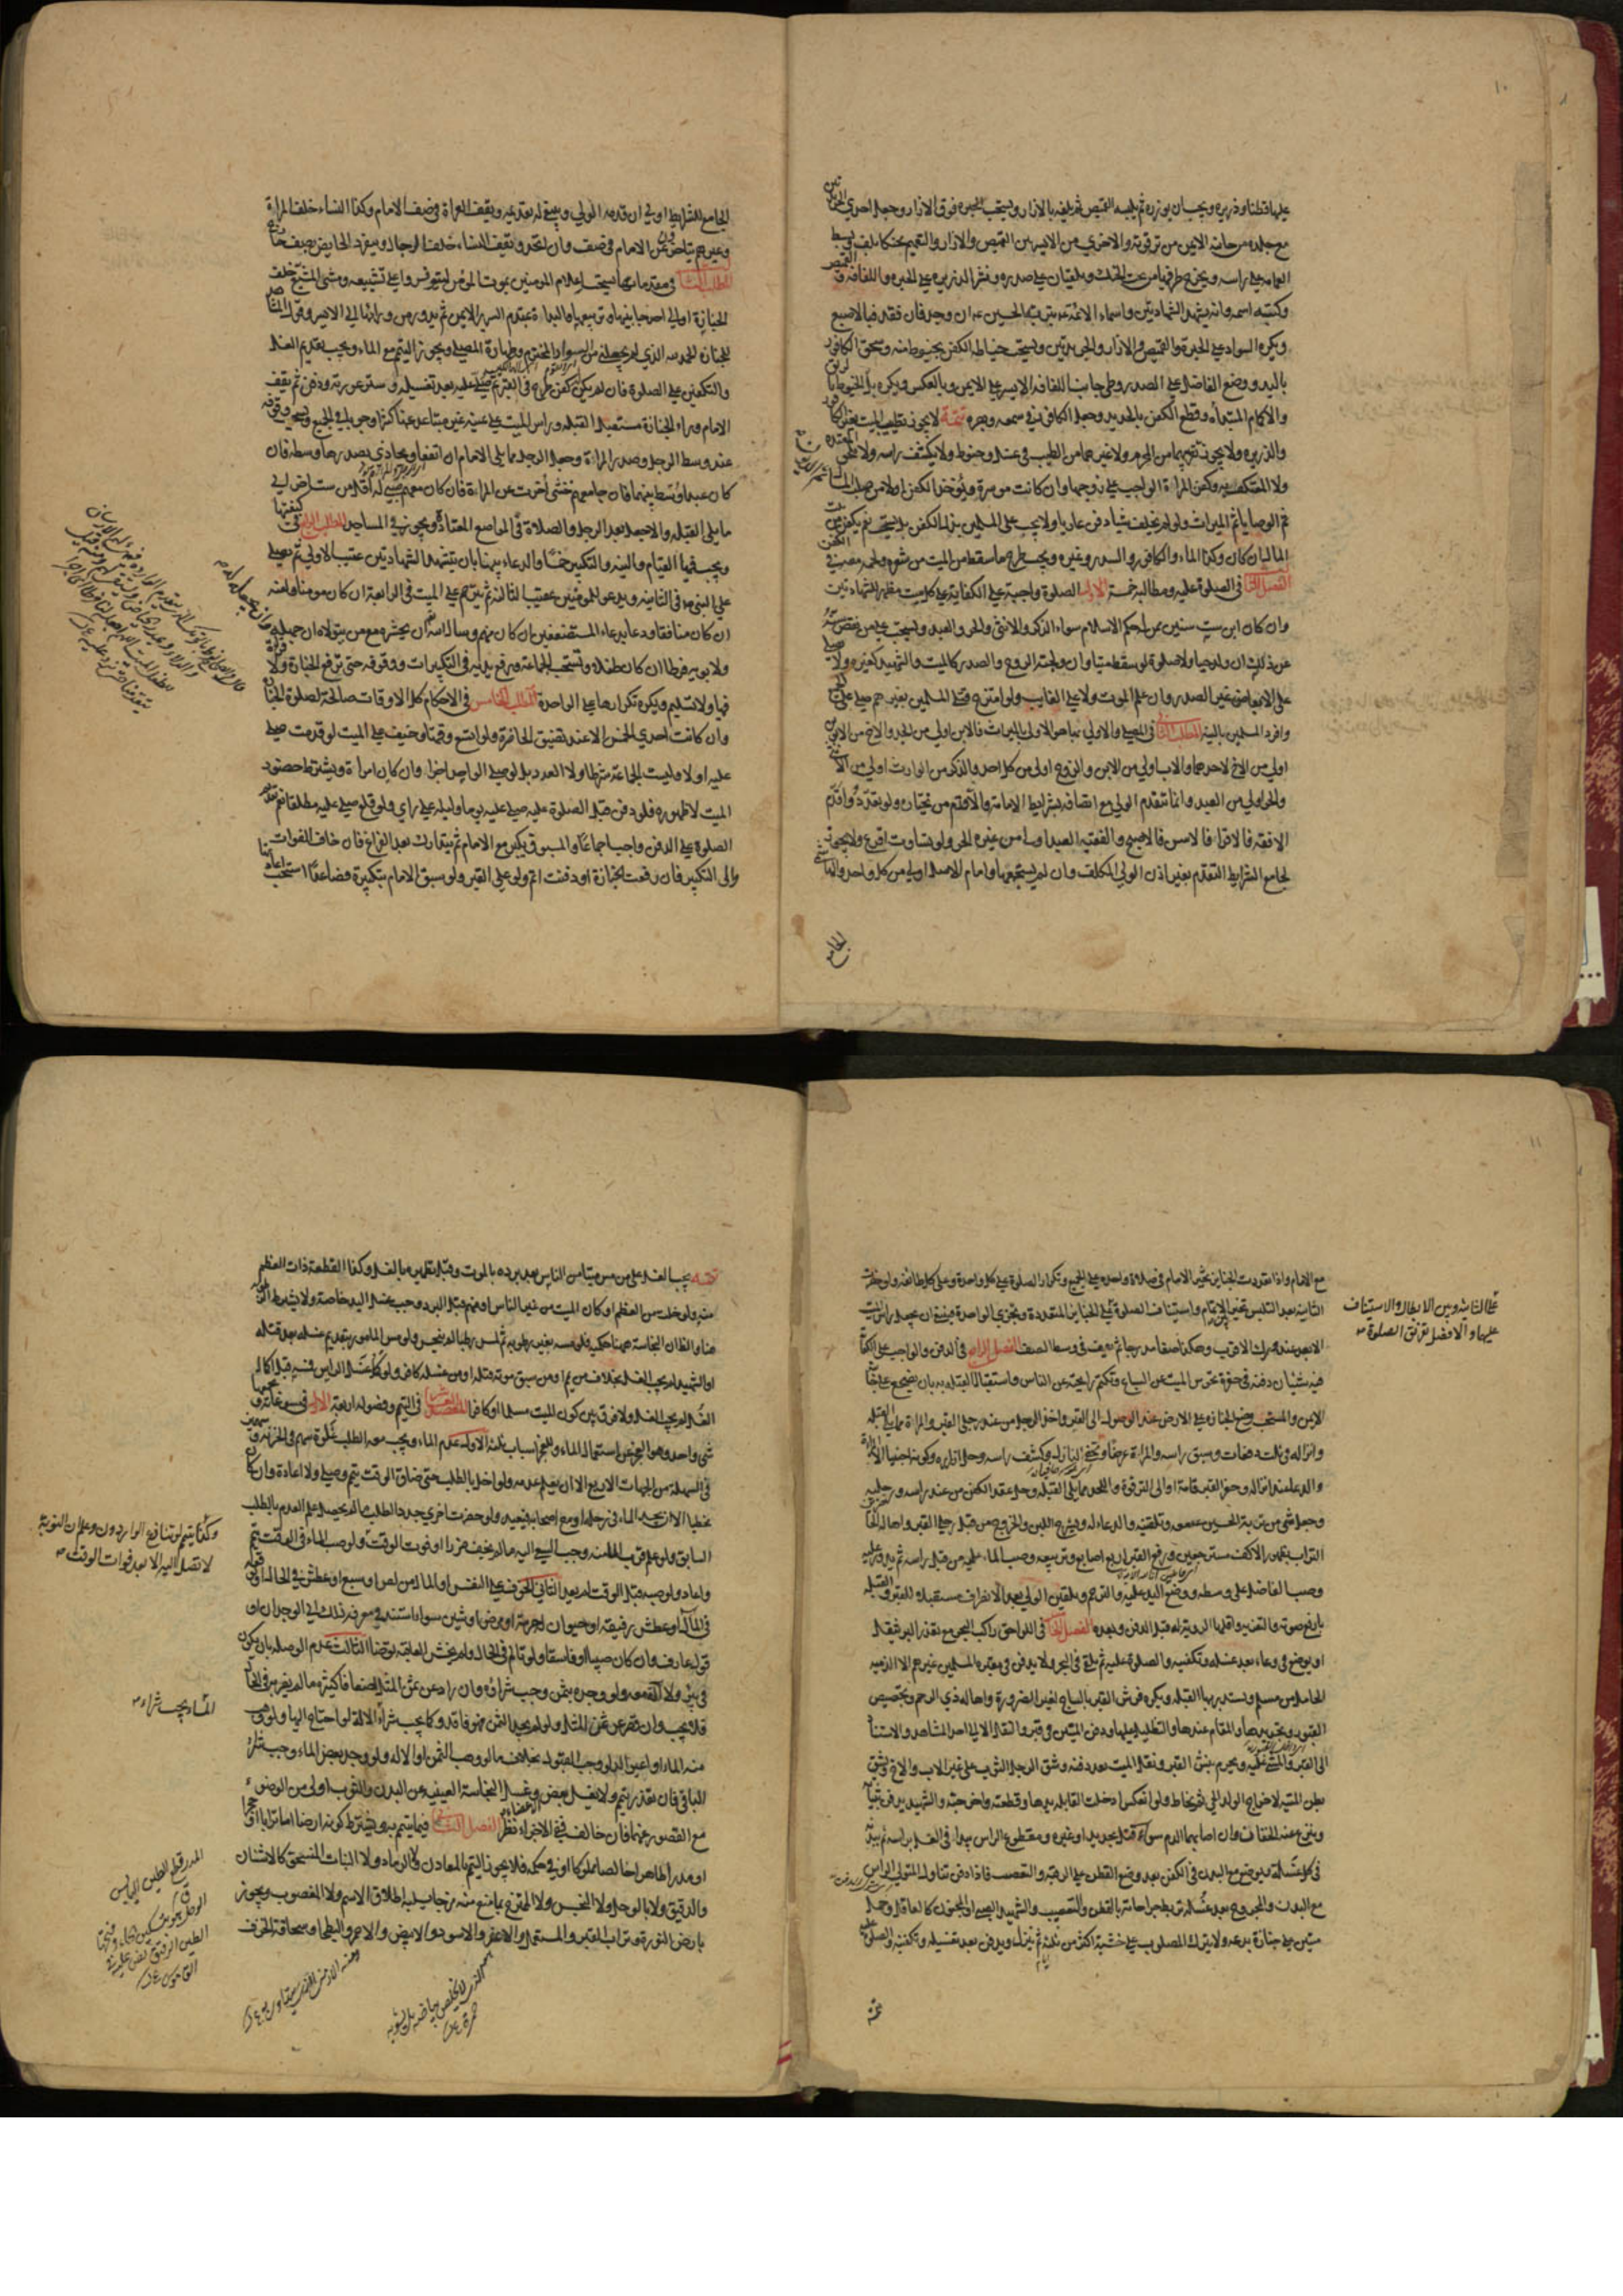 ١٠
عليها قطنا وذريرة ويجب ان يوزره ثم يلبسه القميص ثم يلفه بالازار ويستحب الحبرة فوق الازار وجعل احدى الجريدتين
مع جلده من جانبه الايمن من ترقوته والاخرى من الايسر بين القميص والازار والتعميم محنكا يلف وسط
العمامة على راسه ويخرج طرفيها من تحت الحنك ويلقيان على صدره ونثر الذريرة على الحبرة واللفافة والقميص
وكتبة اسمه وانه يشهد الشهادتين واسماء الائمة بتربة الحسين ان وجد فان فقد فبالاصبع
ويكره بالسواد على الحبرة والقميص والازار والجريدتين ويستحب خياطة الكفن بخيوط منه وسحق الكافور
باليد ووضع الفاضل على الصدر وطي جانب اللفافة الايسر على الايمن وبالعكس ويكره بل الخيوط بالريق
والاكمام المبتدأة وقطع الكفن بالحديد وجعل الكافور في سمعه وبصره تتمة لا يجوز تطييب الميت بغير الكافور
والذريرة ولا يجوز تقريبهما من المحرم ولا غيرهما من الطيب في غسل وحنوط ولا يكشف راسه ولا
ولا المعتكف وكفن المراة الواجب على زوجها وان كانت موسرة ويؤخذ الكفن اولا من صلب المال
ثم الوصايا ثم الميراث ولو لم يخلف شيئا دفن عاريا ولا يجب على المسلمين بذل الكفن بل يستحب نعم يكفن من
بيت المال ان كان وكذا الماء والكافور والسدر وغيره ويجب طرح ما سقط من الميت من شعره ولحمه معه في
الكفن
الفصل الثالث في الصلوة عليه ومطالبه خمسة الاول الصلوة واجبة على الكفاية على كل ميت مظهر للشهادتين
وان كان ابن ست سنين ممن له حكم الاسلام سواء الذكر والانثى والحر والعبد ويستحب على من نقص سنه
عن ذلك ان ولد حيا ولا صلوة لو سقط ميتا وان ولجته الروح والصدر كالميت والشهيد كغيره ولا يصلي
على الابعاض غير الصدر وان علم الموت ولا على الغايب ولو امتزج قتلى المسلمين بغيرهم صلي على الجميع
وافرد المسلمين بالنية المطلب الثاني في المصلي والاولى بها هو الاولى بالميراث فالابن اولى من الجد والاخ من الابوين
اولى من الاخ لاحدهما والاب اولى من الابن والزوج اولى من كل احد والذكر من الوارث اولى من الانثى
والحر اولى من العبد وانما يتقدم الولي مع اتصافه بشرايط الامامة والا قدم من يختاره ولو تعددوا قدم
الافقه فالاقرا فالاسن فالاصبح والفقيه العبد اولى من غيره الحر ولو تساووا اقرع ولا يجوز
لجامع الشرايط التقدم بغير اذن الولي المكلف وان لم يستجمعها وامام الاصل اولى من كل احد والهاشمي
الجامع
الجامع للشرايط اولى ان قدمه الولي وينبغي له تقديمه ويقف العراة في صف الامام وكذا النساء خلف المراة
وغيرهم يتاخر عن الامام في صف وان اتحد ويقف النساء خلف الرجال وينفرد الحايض بصف خارج
المطلب الثالث في مقدماتها يستحب اعلام المومنين بموت المومن ليتوفروا على تشييعه ومشي المشيع خلف
الجنازة او الى احد جانبيها وتربيعها والبداة بمقدم السرير الايمن ثم يدور من ورائها الى الايسر وقول المشاهد
للجنازة الحمد لله الذي لم يجعلني من السواد المخترم وطهارة المصلي ويجوز التيمم مع الماء ويجب تقديم الغسل
والتكفين على الصلوة فان لم يكن كفن طرح في القبر ثم صلي عليه بعد تغسيله وستر عورته ودفن ثم يقف
الامام وراء الجنازة مستقبل القبلة وراس الميت على يمينه غير متباعد عنها كثيرا وجوبا في الجميع ويستحب وقوفه
عند وسط الرجل وصدر المراة وجعل الرجل مما يلي الامام ان اتفقا ويحاذي بصدرها وسطه فان
كان عبدا وسط بينهما فان جامعهم خنثى اخرت عن المراة فان كان معهم صبي له اقل من ست اخر الى
ما يلي القبلة والا جعل بعد الرجل والصلاة في المواضع المعتادة ويجوز في المساجد المطلب الرابع في كيفيتها
ويجب فيها القيام والنية والتكبير خمسا والدعاء بينها بان يتشهد الشهادتين عقيب الاولى ثم يصلي
على النبي في الثانية ويدعو للمومنين عقيب الثالثة ثم يترحم على الميت في الرابعة ان كان مومنا ولعنه
ان كان منافقا ودعا بدعاء المستضعفين ان كان منهم وسال الله ان يحشره مع من يتولاه ان جهله وان يجعله له
ولابويه فرطا ان كان طفلا ويستحب الجماعة ورفع يديه في التكبيرات ووقوفه حتى ترفع الجنازة ولا قراءة
فيها ولا تسليم ويكره تكرارها على الواحدة المطلب الخامس في الاحكام كل الاوقات صالحة لصلوة الجنازة
وان كانت احدى الخمس الا عند تضيق الحاضرة ولو اتسع وقتها وخيف على الميت لو قدمت صلي
عليه اولا وليست الجماعة شرطا ولا العدد بل لو صلى الواحد اجزا وان كان امراة ويشترط حضور
الميت لا ظهوره فلو دفن قبل الصلوة عليه صلي عليه يوما وليلة على راي ولو قلع صلي عليه مطلقا نعم تقدم
الصلوة على الدفن واجب اجماعا والمسبوق يكبر مع الامام ثم يتدارك بعد الفراغ فان خاف الفوات
والى التكبير فان رفعت الجنازة او دفنت اتم ولو على القبر ولو سبق الامام بتكبيرة فصاعدا استحب اعادتها
١١
مع الامام واذا تعددت الجنايز تخير الامام في صلاة واحدة على الجميع وتكرار الصلوة على كل واحدة وعلى كل طائفة ولو حضرت
الثانية بعد التلبس تخير بين الاتمام واستيناف الصلوة على الجنايز المتعددة ويجزى الواحدة فينبغي ان يجعل راس الميت
الابعد عند ورك الاقرب وهكذا صفا مدرجا ثم يقف في وسط الصف الفصل الرابع في الدفن والواجب على الكفاية
فيه شيئان دفنه في حفرة تحرس الميت عن السباع وتكتم رايحته عن الناس واستقبال القبلة به بان يضجع على جانبه
الايمن والمستحب وضع الجنازة على الارض عند الوصول الى القبر واخذ الرجل من عند رجلي القبر والمراة مما يلي القبلة
وانزاله في ثلث دفعات وسبق راسه والمراة عرضا وتحفي النازل وكشف راسه وحل ازراره وكونه اجنبيا الا المراة
والدعا عند انزاله وحفر القبر قامة او الى الترقوة واللحد مما يلي القبلة وحل عقد الكفن من عند راسه ورجليه
وجعل شي من تربة الحسين معه وتلقينه والدعا له وشرج اللبن والخروج من قبل رجلي القبر واهالة الحاضرين
التراب بظهور الاكف مسترجعين ورفع القبر اربع اصابع وتربيعه وصب الماء عليه من قبل راسه ثم يدور عليه
وصب الفاضل على وسطه ووضع اليد عليه والترحم وتلقين الولي بعد الانصراف مستقبلا للقبر والقبلة
بارفع صوته والتعزية واقلها الروية له قبل الدفن وبعده الفصل الخامس في اللواحق راكب البحر مع تعذر البر يثقل
او يوضع في وعاء بعد غسله وتكفينه والصلوة عليه ثم يلقى في البحر ولا يدفن في مقبرة المسلمين غيرهم الا الذمية
الحامل من مسلم ويستدبر بها القبلة ويكره فرش القبر بالساج لغير الضرورة واهالة ذي الرحم وتجصيص
القبور وتجديدها والمقام عندها والتظليل عليها ودفن الميتين في قبر والنقل الا الى احد المشاهد والاستناد
الى القبر والمشي عليه ويحرم نبش القبر ونقل الميت بعد دفنه وشق الرجل الثوب على غير الاب والاخ ويشق
بطن الميتة لاخراج الولد الحي ثم يخاط ولو انعكس ادخلت القابلة يدها وقطعته واخرجته والشهيد يدفن بثيابه
وينزع عنه الخفان وان اصابهما الدم سواء قتل بحديد او غيره ومقطوع الراس يبدا في الغسل براسه ثم ببدنه
في كل غسلة ويوضع مع البدن في الكفن بعد وضع القطن على الرقبة والتعصيب فاذا دفن تناول المتولي الراس
مع البدن والمجروح بعد غسله تربط جراحاته بالقطن والتعصيب والشهيد الصبي او المجنون كالعاقل وحمل
ميتين على جنازة بدعة ولا يترك المصلوب على خشبة اكثر من ثلثة ثم ينزل ويدفن بعد تغسيله وتكفينه والصلوة عليه
على الثانية وبين الابطال والاستيناف
عليهما والافضل تفريق الصلوة
تتمة
تتمة يجب الغسل على من مس ميتا من الناس بعد برده بالموت وقبل تطهيره بالغسل وكذا القطعة ذات العظم
منه ولو خلت من العظم او كان الميت من غير الناس او منهم قبل البرد وجب غسل اليد خاصة ولا يشترط الرطوبة
هنا والظاهر ان النجاسة هنا حكمية فلو مسه بغير رطوبة ثم لمس رطبا لم ينجس ولو مس المامور بتقديم غسله بعد قتله
او الشهيد لم يجب الغسل بخلاف من يمم او من سبق موته قتله او من غسله كافر ولو كمل غسل الراس فمسه قبل اكمال
الغسل لم يجب الغسل ولا فرق بين كون الميت مسلما او كافرا المقصد الخامس في التيمم وفصوله اربعة الاول في مسوغاته
شي واحد وهو العجز عن استعمال الماء وللعجز اسباب ثلثة الاول عدم الماء ويجب معه الطلب غلوة سهم في الحزنة وسهمين
في السهلة من الجهات الاربع الا ان يعلم عدمه ولو اخل بالطلب حتى ضاق الوقت تيمم وصلى ولا اعادة وان كان
مخطئا الا ان يجد الماء في رحله او مع اصحابه فيعيد ولو حضرت اخرى جدد الطلب ما لم يحصل علم العدم بالطلب
السابق ولو علم قرب الماء منه وجب السعي اليه ما لم يخف ضررا او فوت الوقت ولو صب الماء في الوقت تيمم
واعاد ولو صبه قبل الوقت لم يعد الثاني الخوف على النفس او المال من لص او سبع او عطش في الحال او توقعه
في المآل او عطش رفيقه او حيوان له حرمة او مرض او شين سواء استند في معرفة ذلك الى الوجدان او
قول عارف وان كان صبيا او فاسقا ولو تالم في الحال ولم يخش العاقبة توضا الثالث عدم الوصلة بان يكون
في بئر ولا آلة معه ولو وجده بثمن وجب شراؤه وان زاد عن ثمن المثل اضعافا كثيرة ما لم يضر به في الحال
فلا يجب وان قصر عن ثمن المثل ولو لم يجد الثمن فهو فاقد وكما يجب شراء الالة لو احتاج اليها ولو وهب
منه الماء او اعير الدلو وجب القبول بخلاف ما لو وهب الثمن او الالة ولو وجد بعض الماء وجب شراء
الباقي فان تعذر تيمم ولا يغسل بعض وغسل النجاسة العينية عن البدن والثوب اولى من الوضوء
مع القصور عنهما فان خالف ففي الاجزاء نظر الفصل الثاني فيما يتيمم به ويشترط كونه ارضا اما ترابا او حجرا
او مدرا طاهرا خالصا مملوكا او في حكمه فلا يجوز التيمم بالمعادن ولا الرماد ولا النبات المنسحق كالاشنان
والدقيق ولا بالوحل ولا النجس ولا الممتزج بما منع منه مزجا يسلبه اطلاق الاسم ولا المغصوب ويجوز
بارض النورة وتراب القبر والمستعمل والاعفر والاسود والابيض والاحمر والبطحا وسحاقة الخزف
وكذا يتيمم لو تنازع الواردون وعلم ان النوبة
لا تصل اليه الا بعد فوات الوقت
اما ما يجب شراء
المدر قطع الطين اليابس